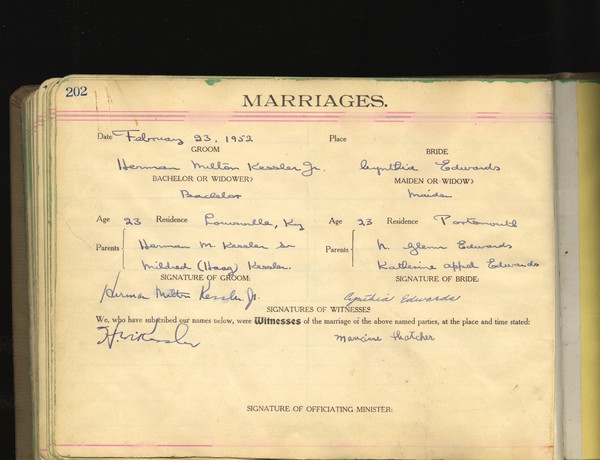 202
MARRIAGES.
Date February 23, 1952 Place
GROOM BRIDE
Herman Milton Kessler Jr. Cynthia Edwards
BACHELOR OR WIDOWER? MAIDEN OR WIDOW?
Bachelor Maiden
Age 23 Residence Louisville, Ky Age 23 Residence Portsmouth
Parents Herman M. Kessler Sr Parents N. Glenn Edwards
Mildred (Haag) Kessler. Katherine Appel Edwards
SIGNATURE OF GROOM: SIGNATURE OF BRIDE:
Herman Milton Kessler Jr. Cynthia Edwards
SIGNATURES OF WITNESSES
We, who have subscribed our names below, were Witnesses of the marriage of the above named parties, at the place and time stated:
Kessler Maxine Thatcher
SIGNATURE OF OFFICIATING MINISTER: